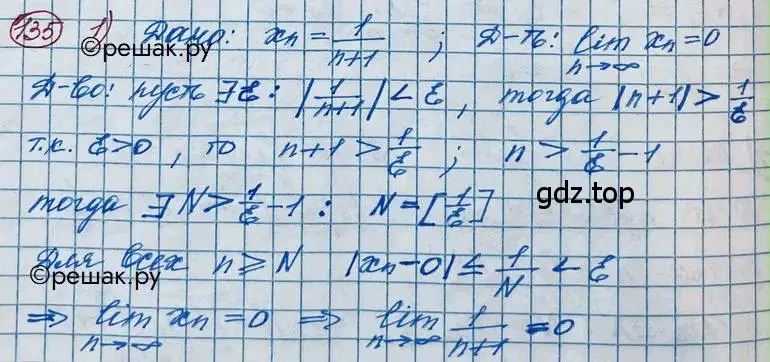 135 1) Дано: xₙ = 1/(n+1) ; Д-ть: lim xₙ = 0 n→∞
©решак.ру
Д-во: пусть ∃ε: |1/(n+1)| < ε, тогда |n+1| > 1/ε
т.к. ε>0, то n+1 > 1/ε ; n > 1/ε − 1
gdz.top
тогда ∃ N > 1/ε − 1 : N = [1/ε]
Для всех n ⩾ N |xₙ − 0| ≤ 1/N < ε
©решак.ру
⇒ lim xₙ = 0 n→∞ ⇒ lim 1/(n+1) = 0 n→∞